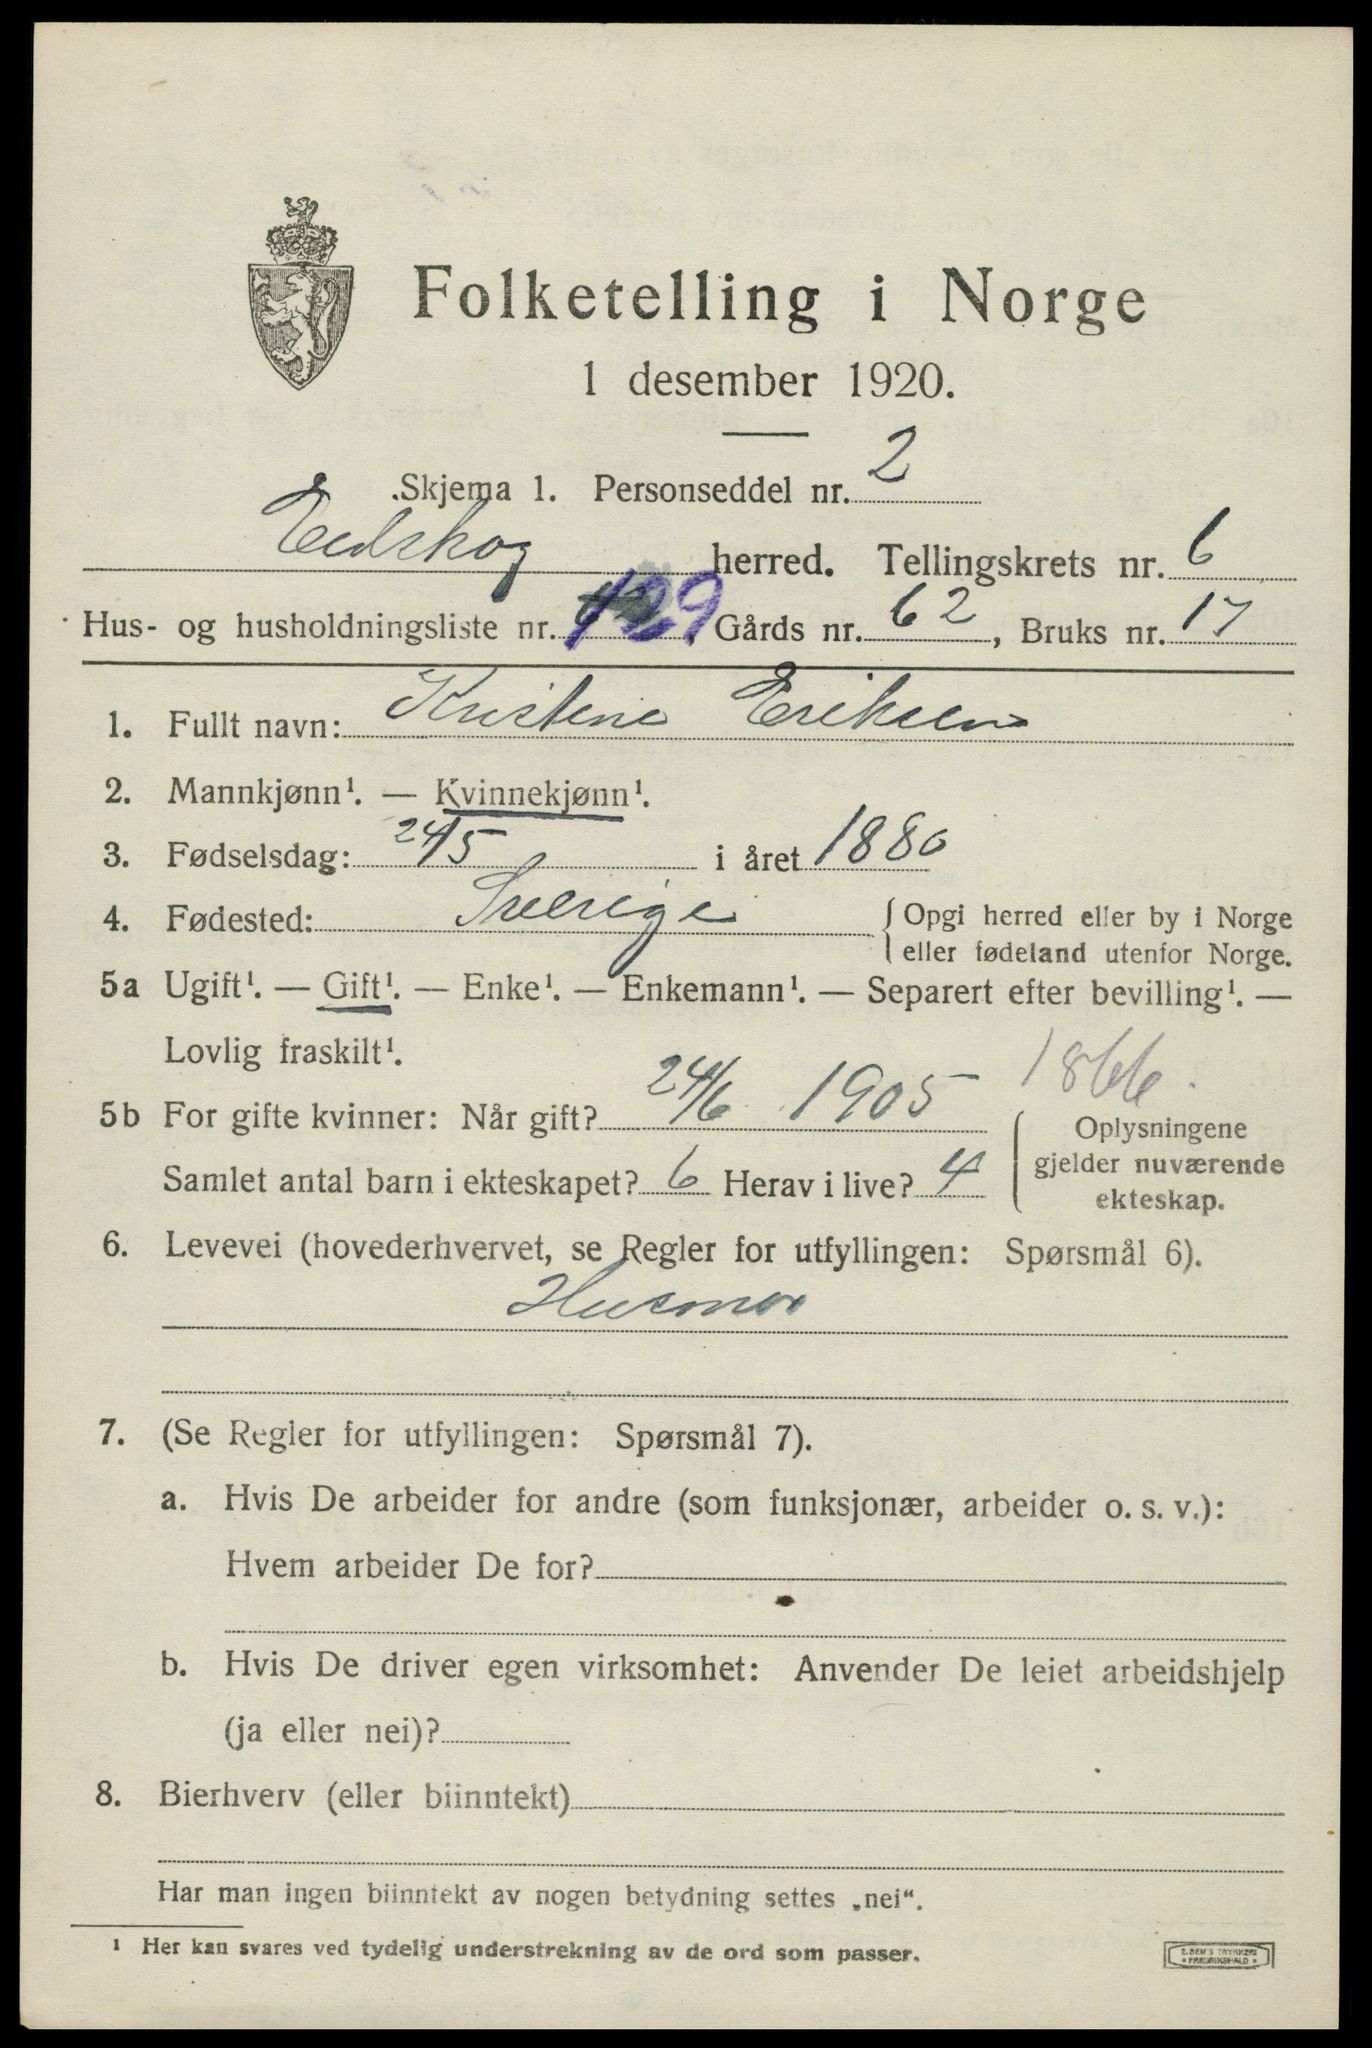 Folketelling i Norge
1 desember 1920.
Skjema 1. Personseddel nr. 2
Eidskog herred. Tellingskrets nr. 6
Hus- og husholdningsliste nr. 129, Gårds nr. 62, Bruks nr. 17
1. Fullt navn: Kristine Eriksen
2. Mannkjønn¹. — Kvinnekjønn¹.
3. Fødselsdag: 24/5 i året 1880
4. Fødested: Sverige {Opgi herred eller by i Norge
eller fødeland utenfor Norge.
5a Ugift¹. — Gift¹. — Enke¹. — Enkemann¹. — Separert efter bevilling¹. —
Lovlig fraskilt¹.
1866.
5b For gifte kvinner: Når gift? 24/6 1905
Samlet antal barn i ekteskapet? 6 Herav i live? 4
Oplysningene
gjelder nuværende
ekteskap.
6. Levevei (hovederhvervet, se Regler for utfyllingen: Spørsmål 6).
Husmor
7. (Se Regler for utfyllingen: Spørsmål 7).
a. Hvis De arbeider for andre (som funksjonær, arbeider o. s. v.):
Hvem arbeider De for?
b. Hvis De driver egen virksomhet: Anvender De leiet arbeidshjelp
(ja eller nei)?
8. Bierhverv (eller biinntekt)
Har man ingen biinntekt av nogen betydning settes „nei“.
¹ Her kan svares ved tydelig understrekning av de ord som passer.
E. SEM'S TRYKKERI
* FREDRIKSHALD *